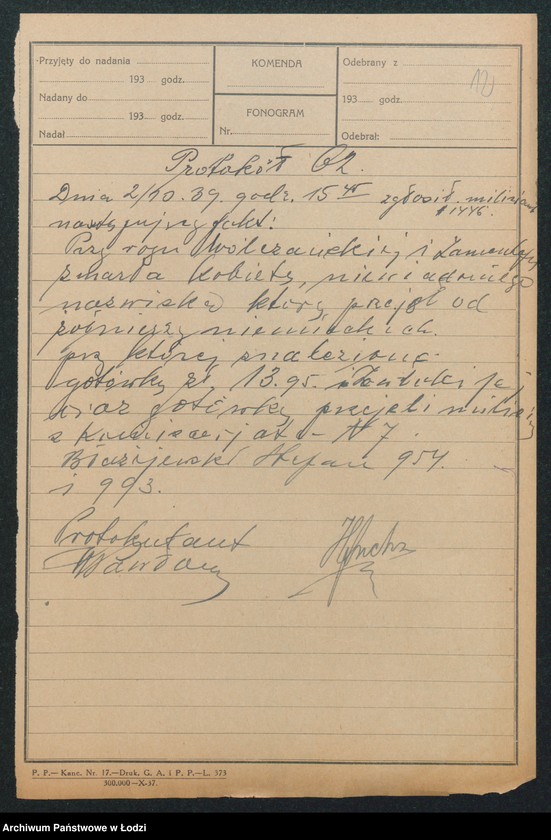 Przyjęty do nadania
193 godz.
Nadany do
193 godz.
Nadał
KOMENDA
FONOGRAM
Nr.
Odebrany z
193 godz.
Odebrał:
Protokół 62.
Dnia 2/10.39. godz. 15 45 zgłosił milicjant
# 1446.
następujący fakt:
Przy rogu Wólczańskiej i Zamenhofa
zmarła kobieta, niewiadomego
nazwiska którą przejął od
żołnierzy niemieckich.
przy której znaleziono
gotówką zł. 13.95. i Zwłoki jej
wraz gotówką przejęli milicjanci
z Komisarjatu - N 7
Błażejewski Stefan 954.
i 993.
Protokulant
P. P.— Kanc. Nr. 17.—Druk. G. A. i P. P.—L. 373
300.000—X-37.
Archiwum Państwowe w Łodzi